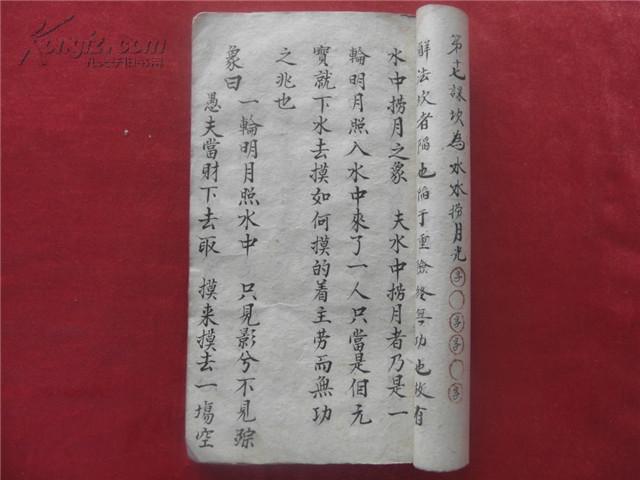 第十七課坎為水水撈月光
解法坎者陷也陷于重險終無功也故有
水中撈月之象 夫水中撈月者乃是一
輪明月照入水中來了一人只當是個元
寶就下水去摸如何摸的着主劳而無功
之兆也
象曰 一輪明月照水中 只見影兮不見踪
愚夫當財下去取 摸来摸去一塲空